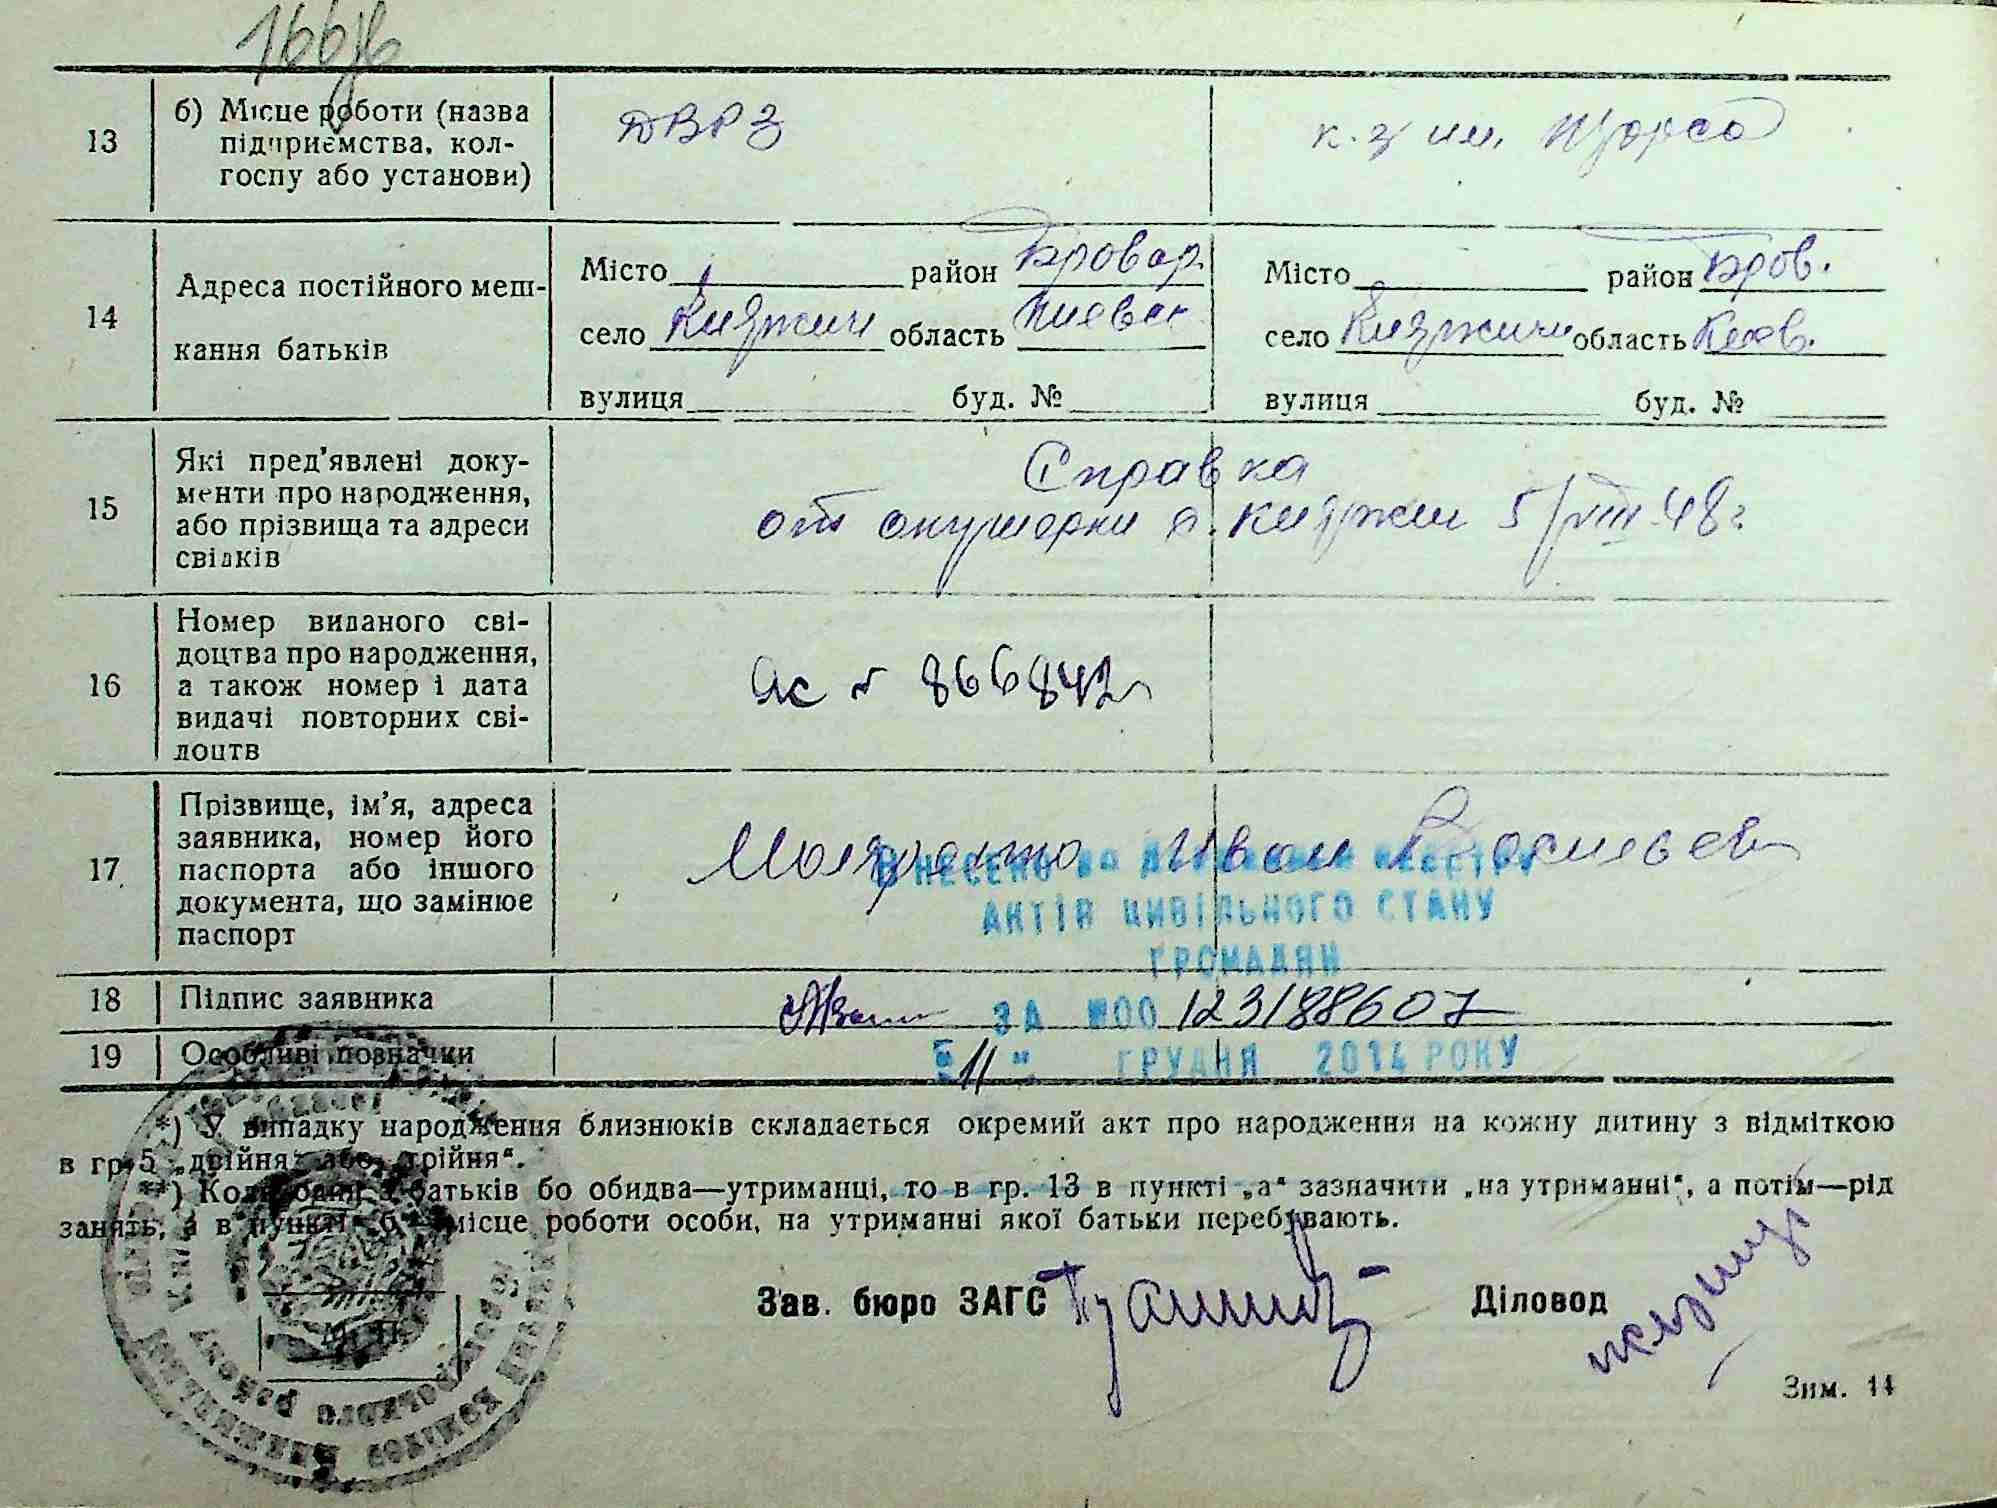 166/в
13 б) Місце роботи (назва підприємства, колгоспу або установи) ДВРЗ к-з им. Щорса
14 Адреса постійного мешкання батьків
Місто район Бровар. Місто район Бров.
село Княжичи область Киевск село Княжичи область Киев.
вулиця буд. № вулиця буд. №
15 Які пред'явлені документи про народження, або прізвища та адреси свідків
Справка
от акушерки с. Княжич 5/VIII-48 г
16 Номер виданого свідоцтва про народження, а також номер і дата видачі повторних свідоцтв
№ 866842
17 Прізвище, ім'я, адреса заявника, номер його паспорта або іншого документа, що замінює паспорт
Иван Васильев
ВНЕСЕНО до ДЕРЖАВНОГО РЕЄСТРУ
АКТІВ ЦИВІЛЬНОГО СТАНУ
ГРОМАДЯН
18 Підпис заявника ЗА №00 123188607
19 Особливі позначки "11" ГРУДНЯ 2014 РОКУ
*) У випадку народження близнюків складається окремий акт про народження на кожну дитину з відміткою
в гр. 5 „двійня“ або „трійня“.
*) Коли один з батьків бо обидва—утриманці, то в гр. 13 в пункті „а“ зазначити „на утриманні“, а потім—рід
занять, а в пункті „б“ місце роботи особи, на утриманні якої батьки перебувають.
Зав. бюро ЗАГС Діловод
М. П.
Зим. 14